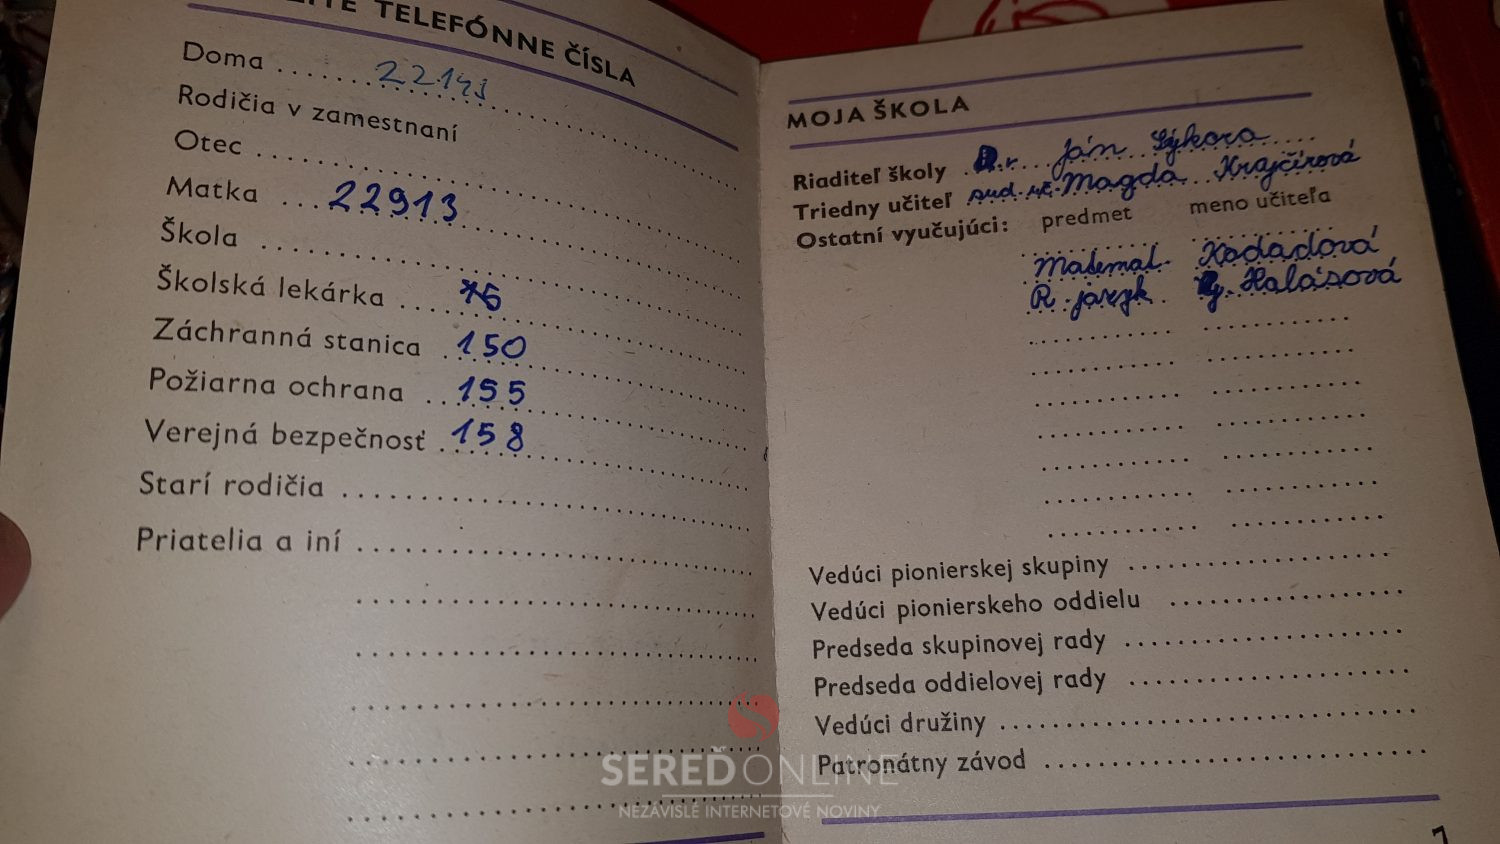 TELEFÓNNE ČÍSLA
Doma 22143
Rodičia v zamestnaní
Otec
Matka 22913
Škola
Školská lekárka
Záchranná stanica 150
Požiarna ochrana 155
Verejná bezpečnosť 158
Starí rodičia
Priatelia a iní
MOJA ŠKOLA
Riaditeľ školy Dr. Ján Sýkora
Triedny učiteľ súd. uč. Magda Krajčírová
Ostatní vyučujúci: predmet meno učiteľa
Matemat. Kadadová
R. jazyk Halásová
Vedúci pionierskej skupiny
Vedúci pionierskeho oddielu
Predseda skupinovej rady
Predseda oddielovej rady
Vedúci družiny
Patronátny závod
7
SEREĎ ONLINE
NEZÁVISLÉ INTERNETOVÉ NOVINY